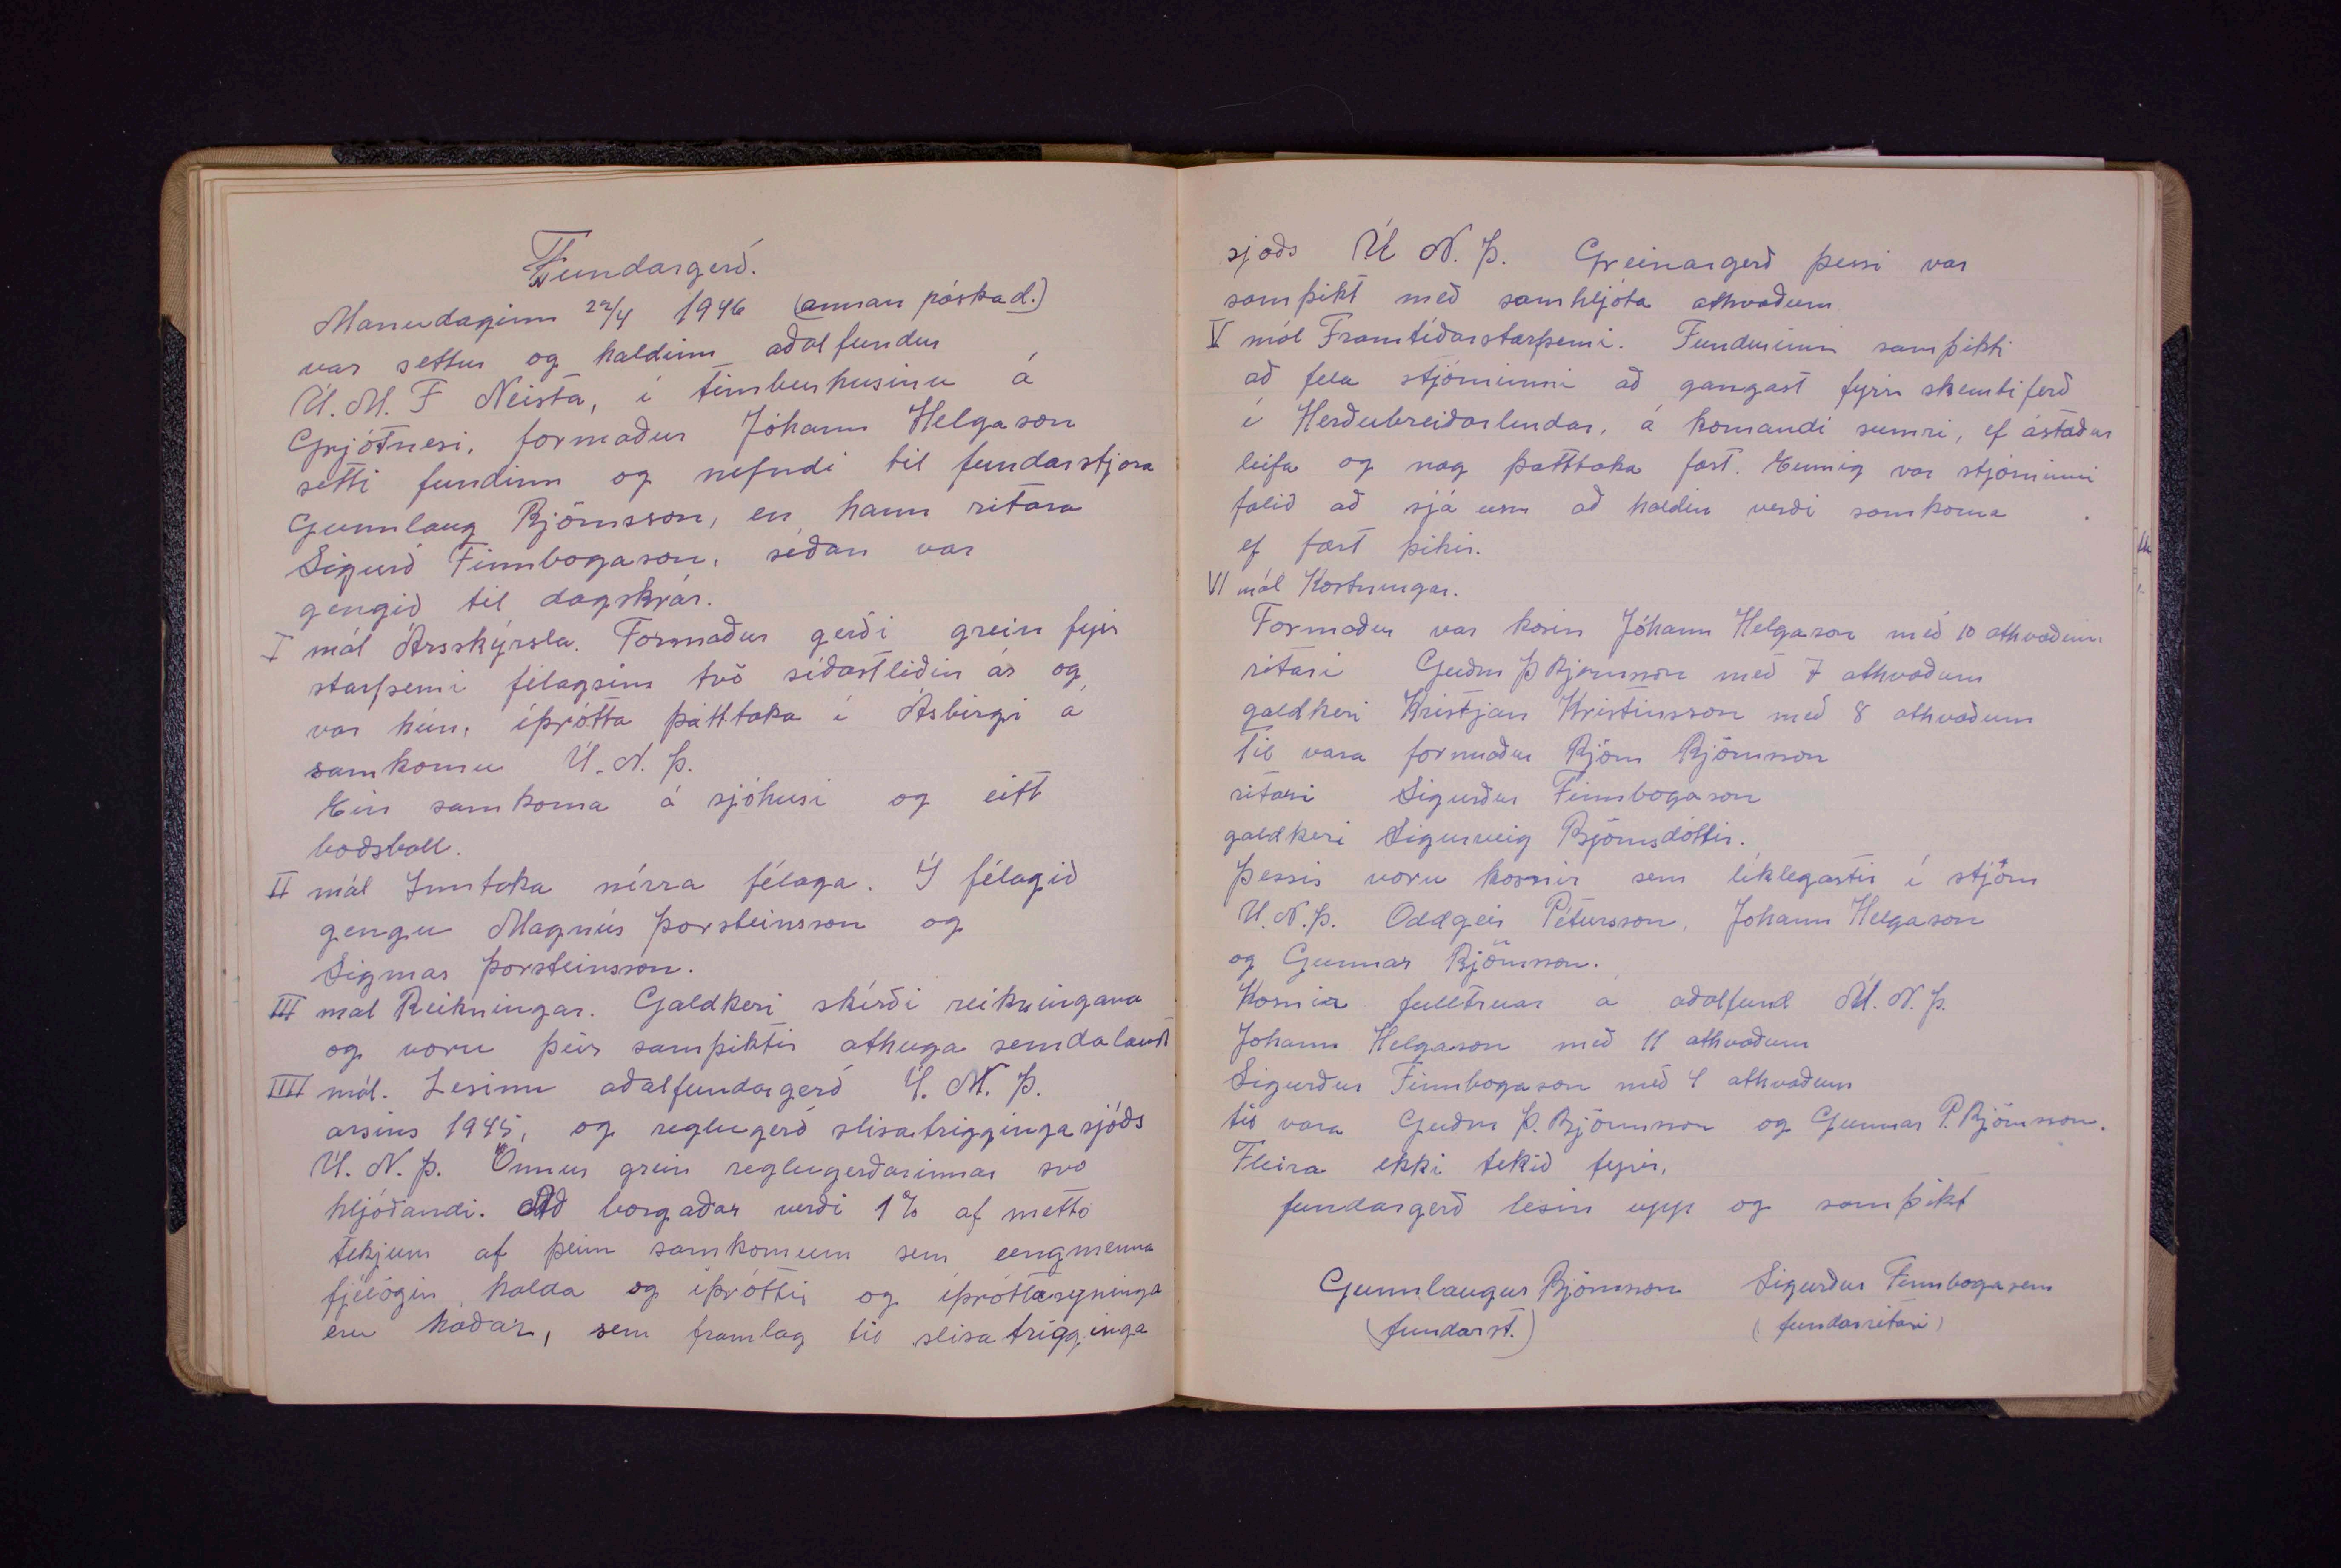 Fundargerð.
Manudaginn 22/4 1946 (annan páskad.)
var settur og haldinn aðalfundur
U.M.F Neista, í timburhusinu á
Grjótnesi, formaður Jóhann Helgason
setti fundinn og nefndi til fundarstjora
Gunnlaug Björnsson, en hann ritara
Sigurð Finnbogason, síðan var
gengið til dagskrár.
I mál Ársskýrsla. Formaður gerði grein fyrir
starfsemi félagsins tvö síðastliðin ár og
var hún, íþrótta þátttaka í Ásbirgi á
samkomu U.N.Þ.
Ein samkoma á sjóhusi og eitt
boðsball.
II mál Inntaka nírra félaga. Í félagið
gengu Magnús Þorsteinsson og
Sigmar Þorsteinsson.
III mal Reikningar. Galdkeri skírði reikningana
og voru þeir samþiktir athugasemdalaust
IIII mál. Lesinn aðalfundargerð U.N.Þ.
arsins 1945, og reglugerð slisatriggingasjóðs
U.N.Þ. Önnur grein reglugerðarinnar svo
hljóðandi. Að borgaðar verði 1% af nettó
tekjum af þeim samkomum sem ungmenna
fjélögin halda og íþróttir og íþróttasyninga
eru háðar, sem framlag til slisatrigginga
sjoðs U N.Þ. Greinargerð þessi var
samþikt með samhljóta athvæðum
V mál Framtíðarstarfsemi. Fundurinn samþikti
að fela stjórninni að gangast fyrir skemtiferð
í Herðubreiðarlindar, á komandi sumri, ef ástæður
leifa og nog þatttaka fæst. Einnig var stjórninni
falið að sjá um að haldin verði samkoma
ef fært þikir.
VI mál Kostningar.
Formaður var kosin Jóhann Helgason með 10 athvæðum
ritari Guðm Þ Bjornsson með 7 athvæðum
galdkeri Kristjan Kristinsson með 8 athvæðum
Til vara formaður Björn Björnsson
ritari Sigurður Finnbogason
galdkeri Sigurveig Björnsdóttir.
Þessir voru kosnir sem líklegastir í stjórn
U.N.Þ. Oddgeir Pétursson, Johann Helgason
og Gunnar Björnsson.
Kosnir fulltruar a aðalfund U.N.Þ.
Johann Helgason með 11 athvæðum
Sigurður Finnbogason með 4 athvæðum
til vara Guðm Þ. Björnsson og Gunnar P. Björnsson.
Fleira ekki tekið fyrir,
fundargerð lesin upp og samþikt
Gunnlaugur Björnsson Sigurður Finnbogason
(fundarst.) (fundarritari)